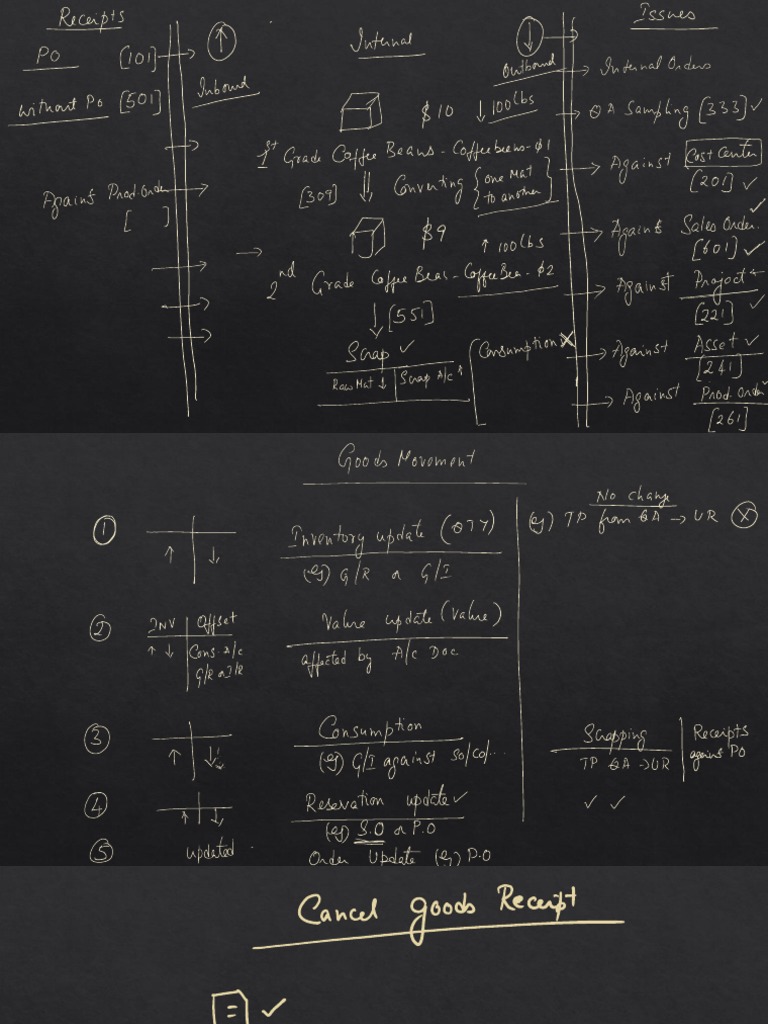 Receipts
PO [101]
without PO [501]
Inbound
Against Prod.Order
[ ]
Internal
$10 ↓ 100lbs
1st Grade Coffee Beans - Coffeebeans-$1
[309] Converting {one Mat to another}
$9 ↑ 100lbs
2nd Grade Coffee Beas - CoffeeBea - $2
↓ [551]
Scrap ✓
Raw Mat ↓ Scrap A/c ↑
Consumption X
Issues
Outbound
→ Internal Orders
→ QA Sampling [333] ✓
→ Against Cost Center
[201] ✓
→ Against Sales Order.
[601] ✓
→ Against Project
[221] ✓
→ Against Asset ✓
[241]
→ Against Prod. Order ✓
[261]
Goods Movement
No change
① ↑ ↓ Inventory update (QTY)
(eg) G/R or G/I
(eg) TP from QA → UR X
② INV Offset
↑ ↓ Cons. A/c
G/R or I/R
Value update (Value)
affected by A/c Doc
③ ↑ ↓ Consumption
(eg) G/I against so/co/...
Scrapping
TP QA → UR
Receipts against PO
✓ ✓
④ ↑ ↓ Reservation update ✓
(eg) S.O or P.O
⑤ updated Order Update (eg) P.O
Cancel goods Receipt